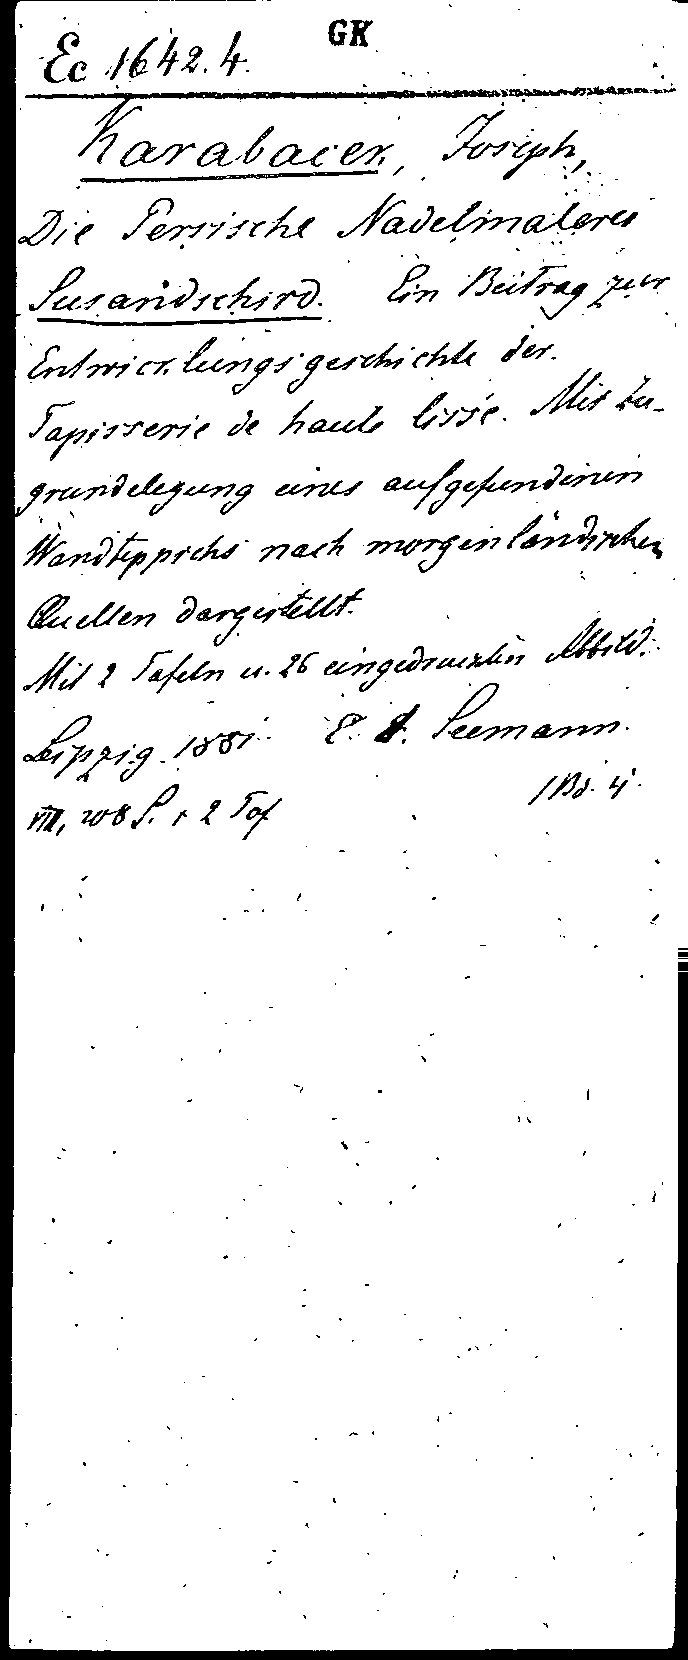 GK
Ec 1642.4.
Karabacek, Joseph,
Die Persische Nadelmalerei
Susandschird. Ein Beitrag zur
Entwicklungsgeschichte der
Tapisserie de haute lisse. Mit Zu-
grundelegung eines aufgefundenen
Wandteppichs nach morgenländischen
Quellen dargestellt.
Mit 2 Tafeln u. 26 eingedruckten Abbild.
Leipzig. 1881. E. A. Seemann.
1 Bd. 4°.
VIII, 208 S. + 2 Taf